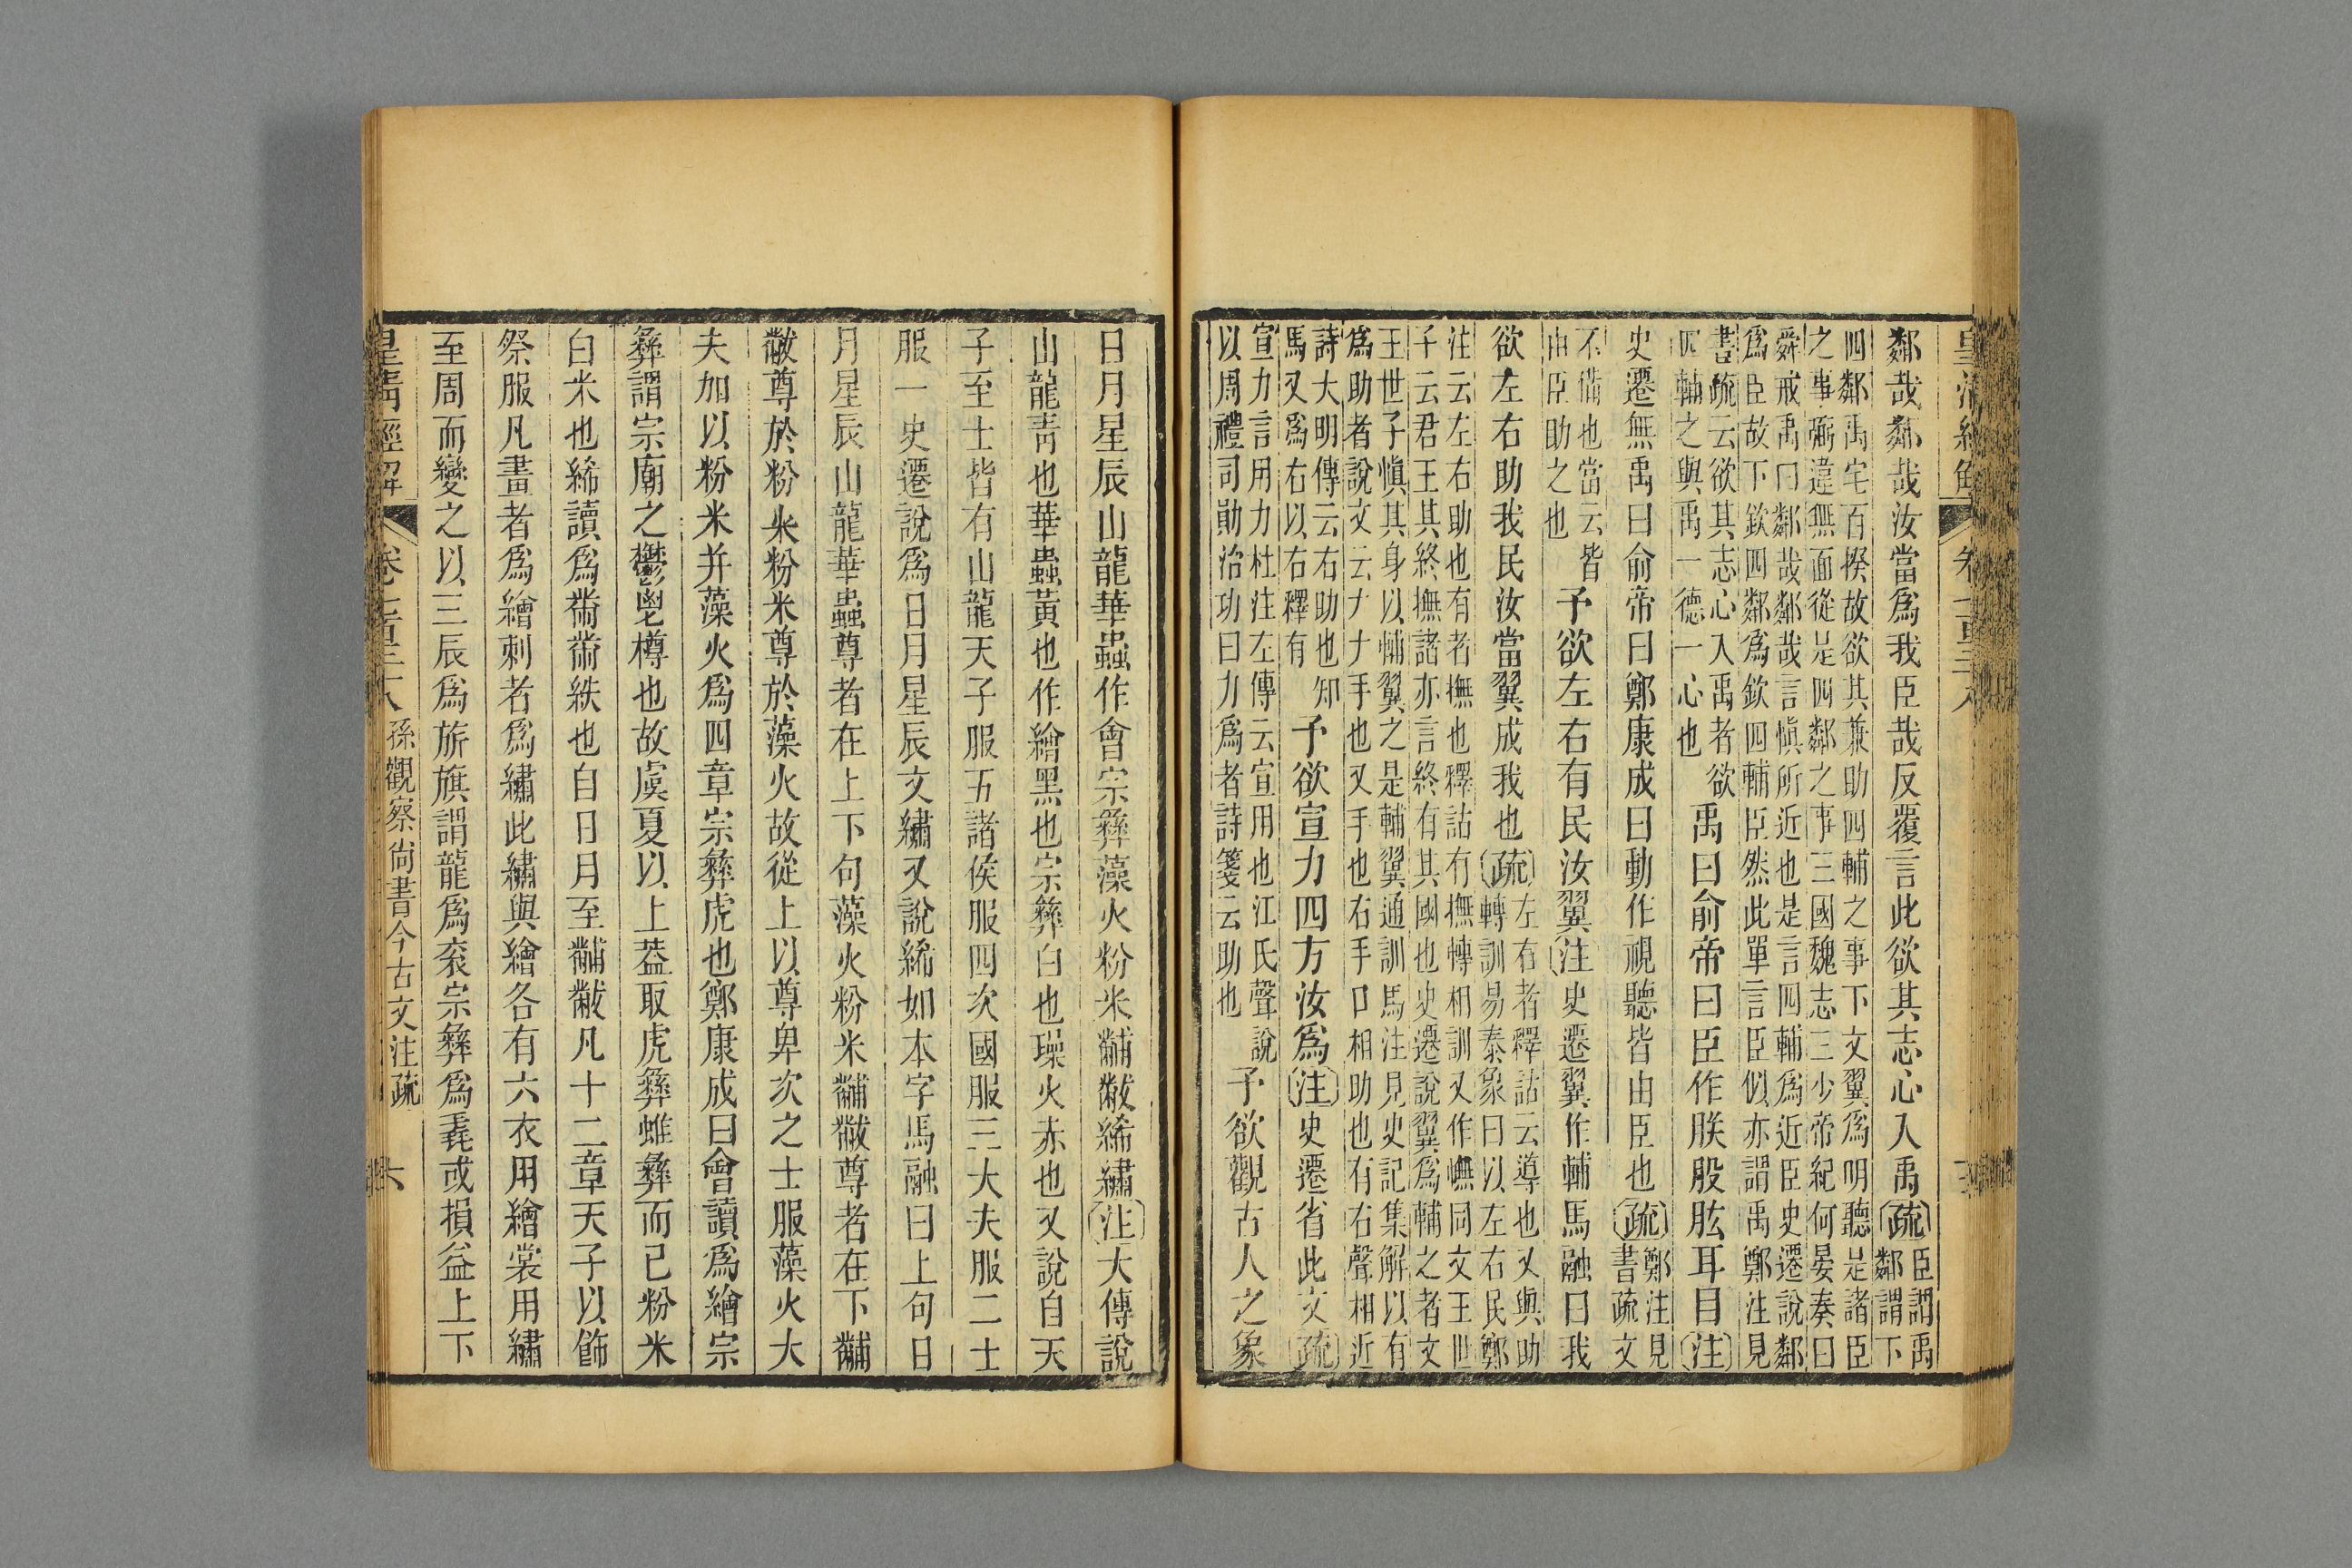 皇清經解 卷七百三十八
鄰哉鄰哉汝當爲我臣哉反覆言此欲其志心入禹疏臣謂禹鄰謂下
四鄰禹宅百揆故欲其兼助四輔之事下文翼爲明聽是諸臣
之事弼違無面從是四鄰之事三國魏志三少帝紀何晏奏曰
舜戒禹曰鄰哉鄰哉言愼所近也是言四輔爲近臣史遷說鄰
爲臣故下欽四鄰爲欽四輔臣然此單言臣似亦謂禹鄭注見
書疏云欲其志心入禹者欲四輔之與禹一德一心也禹曰俞帝曰臣作朕股肱耳目注
史遷無禹曰俞帝曰鄭康成曰動作視聽皆由臣也疏鄭注見書疏文
不備也當云皆由臣助之也予欲左右有民汝翼注史遷翼作輔馬融曰我
欲左右助我民汝當翼成我也疏左右者釋詁云導也又與助轉訓易泰象曰以左右民鄭
注云左右助也有者撫也釋詁有撫轉相訓又作憮同文王世
千云君王其終撫諸亦言終有其國也史遷說翼爲輔之者文
王世子愼其身以輔翼之是輔翼通訓馬注見史記集解以有
爲助者說文云𠂇𠂇手也又手也右手口相助也有右聲相近
詩大明傳云右助也知馬又爲右以右釋有予欲宣力四方汝爲注史遷省此文疏
宣力言用力杜注左傳云宣用也江氏聲說以周禮司勛治功曰力爲者詩箋云助也予欲觀古人之象
日月星辰山龍華蟲作會宗彝藻火粉米黼黻絺繡注大傳說
山龍靑也華蟲黃也作繪黑也宗彝白也璪火赤也又說自天
子至士皆有山龍天子服五諸侯服四次國服三大夫服二士
服一史遷說爲日月星辰文繡又說絺如本字馬融曰上句日
月星辰山龍華蟲尊者在上下句藻火粉米黼黻尊者在下黼
黻尊於粉米粉米尊於藻火故從上以尊卑次之士服藻火大
夫加以粉米并藻火爲四章宗彝虎也鄭康成曰會讀爲繪宗
彝謂宗廟之鬱鬯樽也故虞夏以上葢取虎彝蜼彝而已粉米
白米也絺讀爲黹黹紩也自日月至黼黻凡十二章天子以飾
祭服凡畫者爲繪刺者爲繡此繡與繪各有六衣用繪裳用繡
至周而變之以三辰爲旂旗謂龍爲衮宗彝爲毳或損益上下
皇清經解 卷七百三十八 孫觀察尙書今古文注疏 六